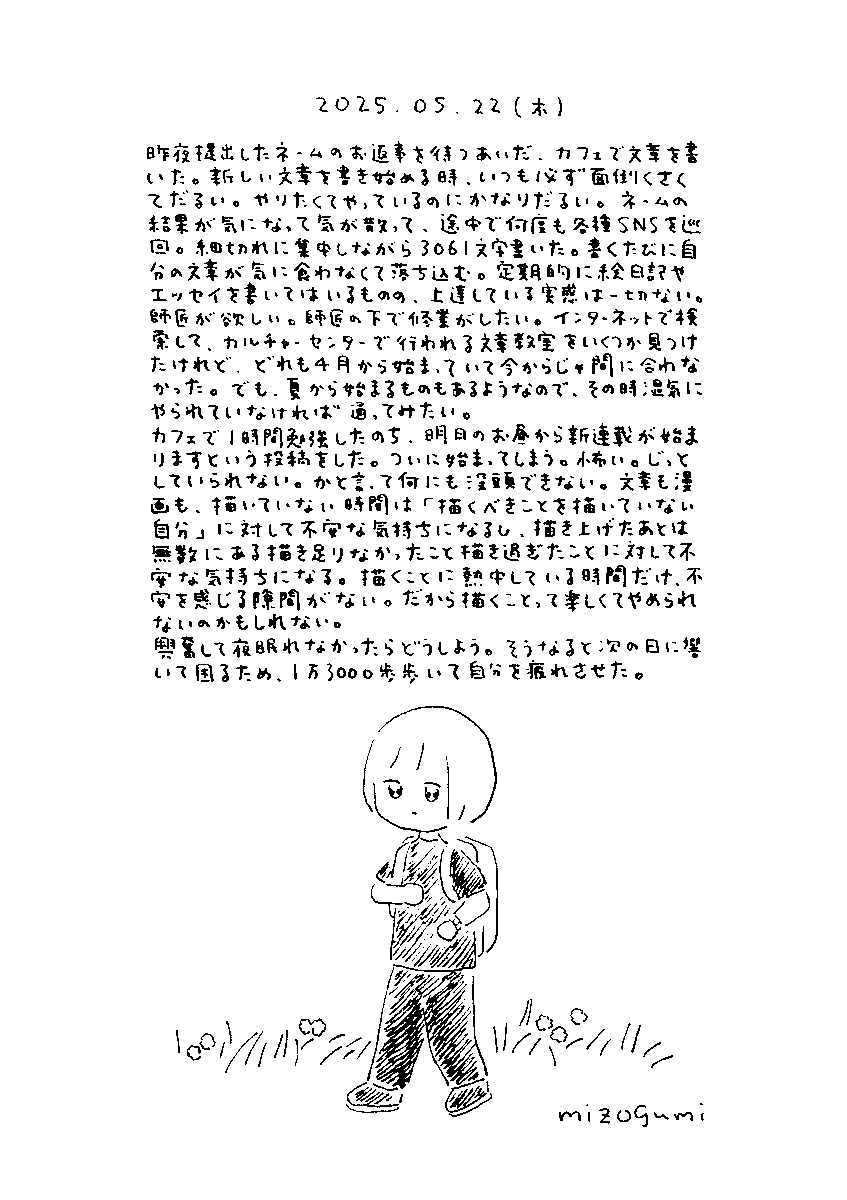 2025.05.22(木)
昨夜提出したネームのお返事を待つあいだ、カフェで文章を書
いた。新しい文章を書き始める時、いつも必ず面倒くさく
てだるい。やりたくてやっているのにかなりだるい。ネームの
結果が気になって気が散って、途中で何度も各種SNSを巡
回。細切れに集中しながら3061文字書いた。書くたびに自
分の文章が気に食わなくて落ち込む。定期的に絵日記や
エッセイを書いてはいるものの、上達している実感は一切ない。
師匠が欲しい。師匠の下で修業がしたい。インターネットで検
索して、カルチャーセンターで行われる文章教室をいくつか見つけ
たけれど、どれも4月から始まっていて今からじゃ間に合わな
かった。でも、夏から始まるものもあるようなので、その時湿気に
やられていなければ通ってみたい。
カフェで1時間勉強したのち、明日のお昼から新連載が始ま
りますという投稿をした。ついに始まってしまう。怖い。じっと
していられない。かと言って何にも没頭できない。文章も漫
画も、描いていない時間は「描くべきことを描いていない
自分」に対して不安な気持ちになるし、描き上げたあとは
無数にある描き足りなかったこと描き過ぎたことに対して不
安な気持ちになる。描くことに熱中している時間だけ、不
安を感じる隙間がない。だから描くことって楽しくてやめられ
ないのかもしれない。
興奮して夜眠れなかったらどうしよう。そうなると次の日に響
いて困るため、1万3000歩歩いて自分を疲れさせた。
mizogumi